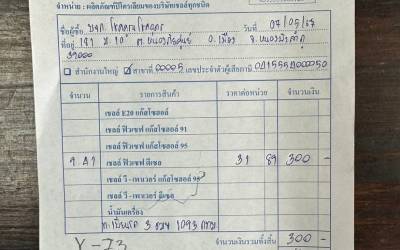 จำหน่าย : ผลิตภัณฑ์ปิโตรเลียมของบริษัทเชลล์ทุกชนิด
ชื่อผู้ซื้อ บจก. วันที่ 07/05/67
ที่อยู่ 191 ม.10 ต.หนองภัยศูนย์ อ.เมือง จ.หนองบัวลำภู
39000
สำนักงานใหญ่ สาขาที่ 00005 เลขประจำตัวผู้เสียภาษี
จำนวน รายการสินค้า ราคาต่อหน่วย จำนวนเงิน
เชลล์ E20 แก๊สโซฮอล์
เชลล์ ฟิวเซฟ แก๊สโซฮอล์ 91
เชลล์ ฟิวเซฟ แก๊สโซฮอล์ 95
9.41 เชลล์ ฟิวเซฟ ดีเซล 31 89 300 -
เชลล์ วี-เพาเวอร์ แก๊สโซฮอล์ 95
เชลล์ วี-เพาเวอร์ ดีเซล
น้ำมันเครื่อง
ทะเบียนรถ 3 1093
จำนวนเงินรวมทั้งสิ้น 300 -